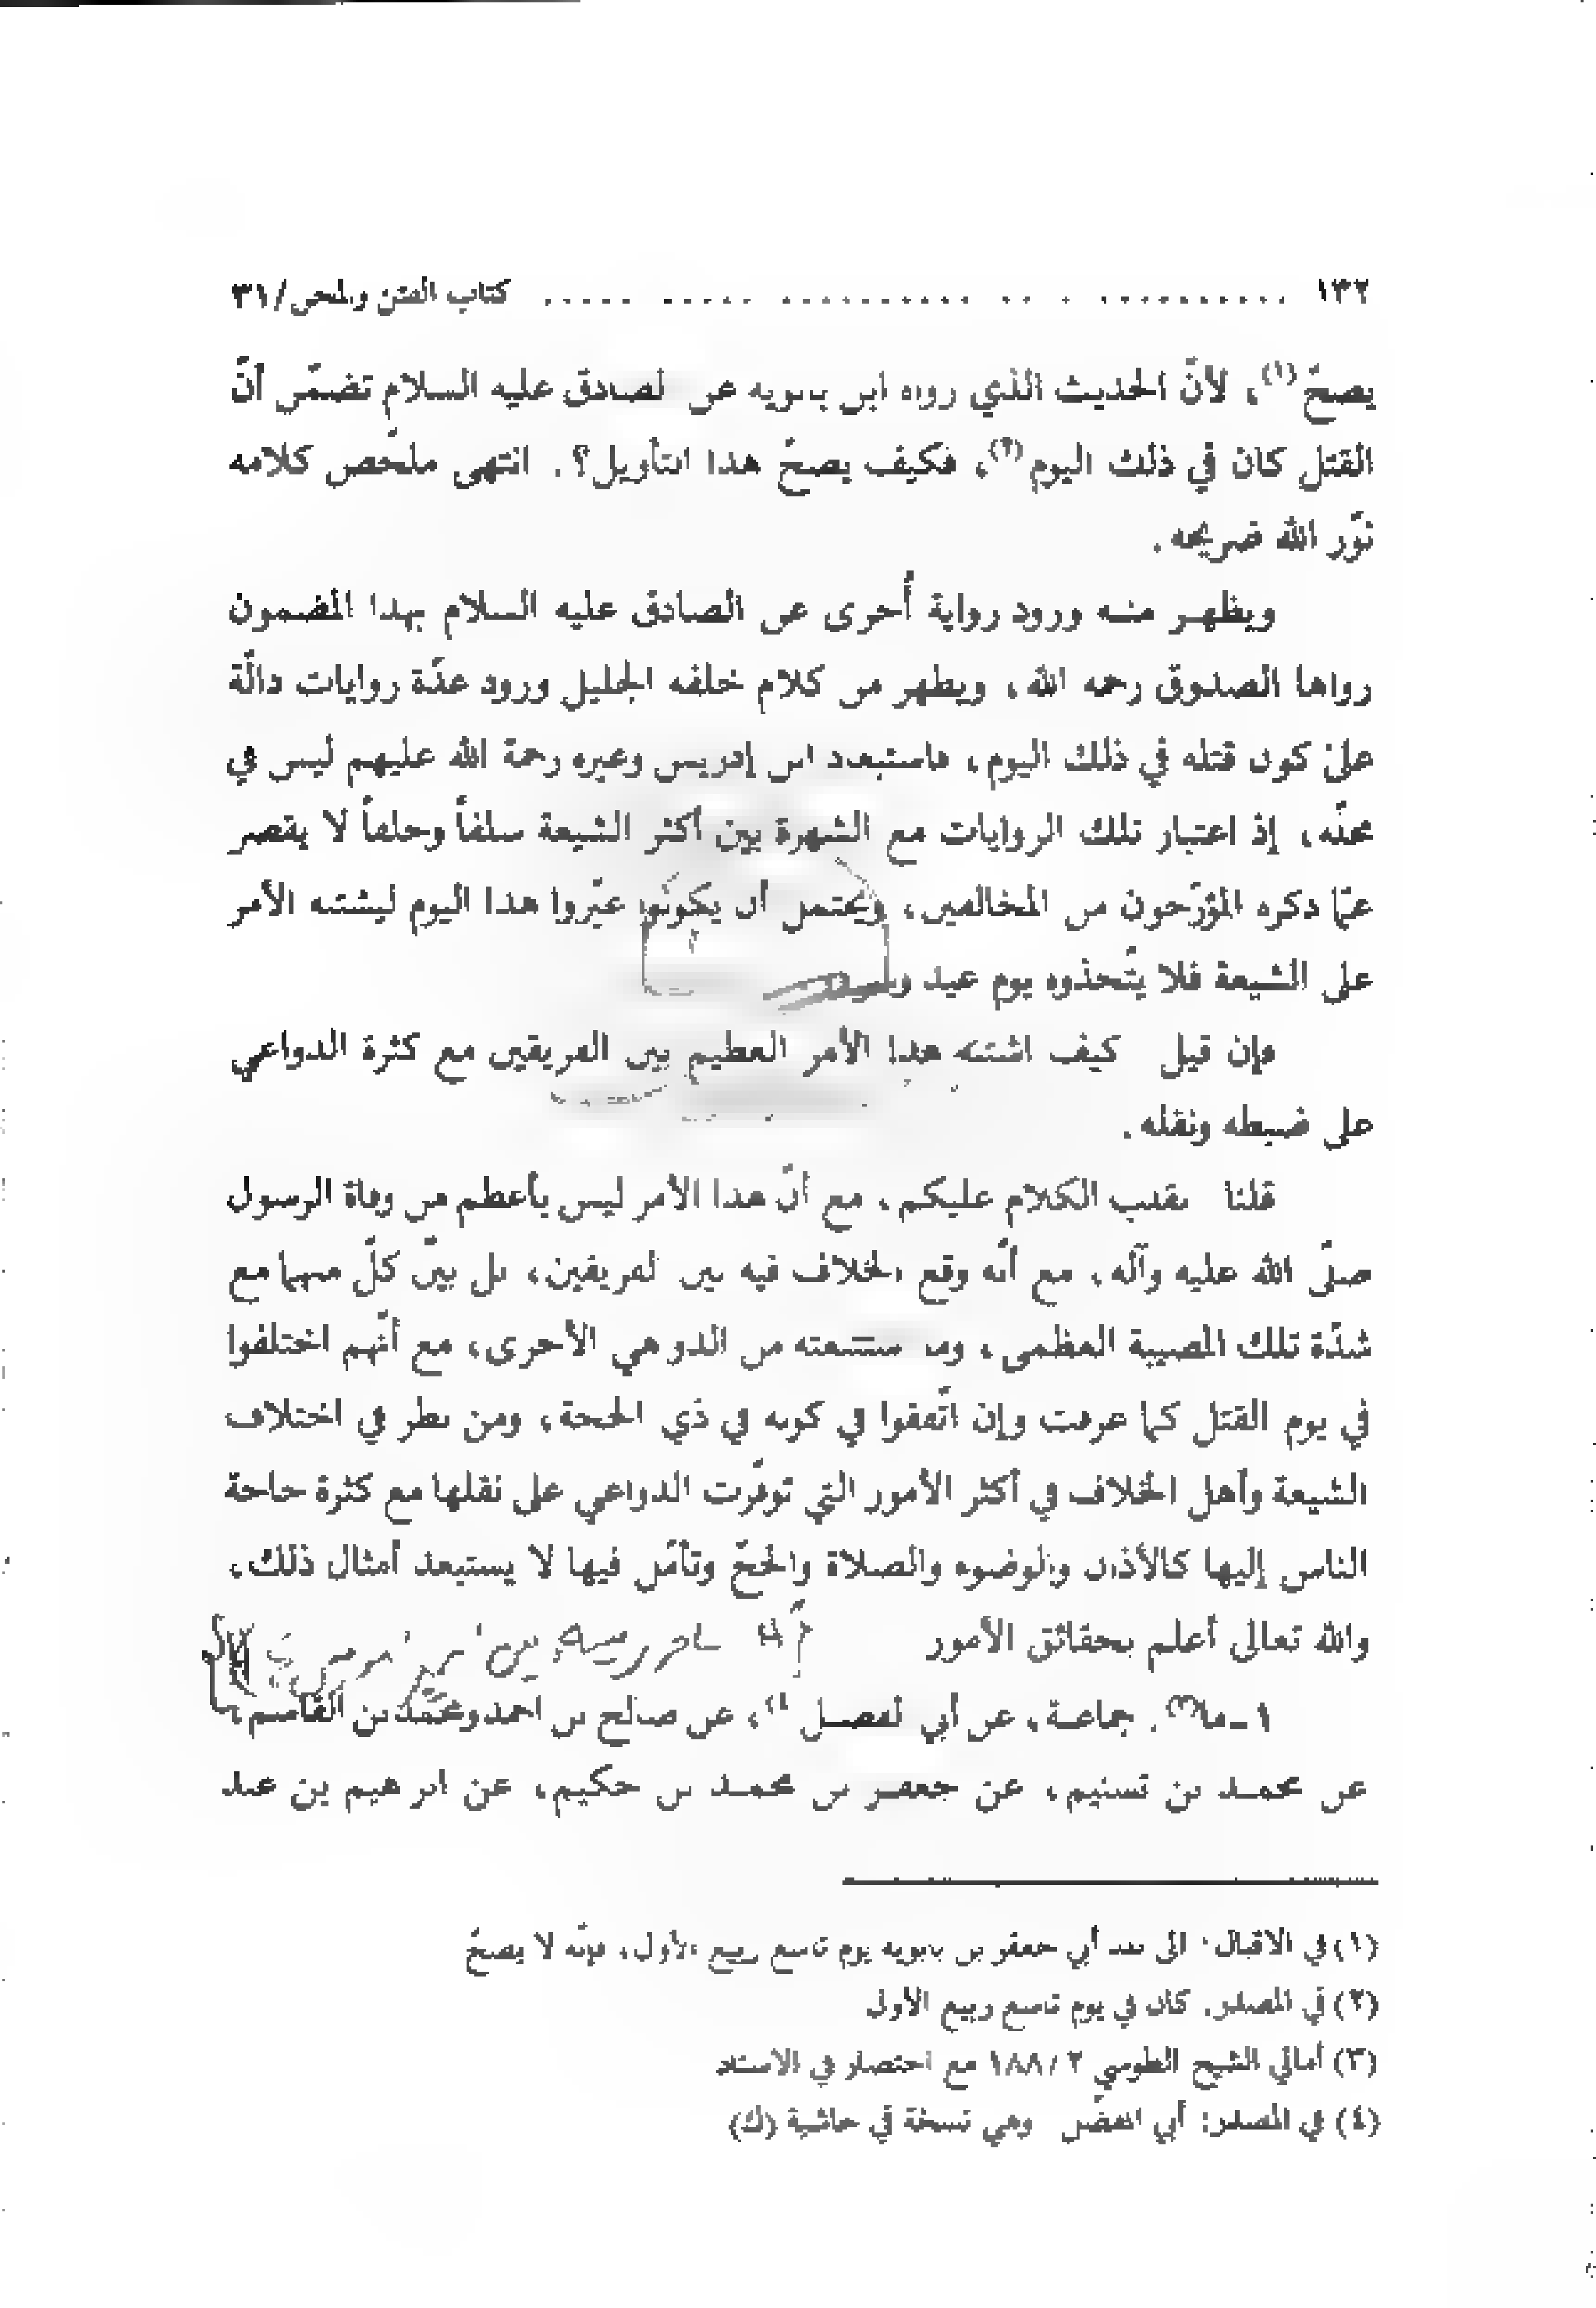 ١٣٢ .......................................... كتاب الفتن والمحن/٣١
يصحّ(١)، لأنّ الحديث الذي رواه ابن بابويه عن الصادق عليه السلام تضمّن أنّ
القتل كان في ذلك اليوم(٢)، فكيف يصحّ هذا التأويل؟. انتهى ملخّص كلامه
نوّر الله ضريحه.
ويظهر منه ورود رواية أُخرى عن الصادق عليه السلام بهذا المضمون
رواها الصدوق رحمه الله، ويظهر من كلام خلفه الجليل ورود عدّة روايات دالّة
على كون قتله في ذلك اليوم، فاستبعاد ابن إدريس وغيره رحمة الله عليهم ليس في
محلّه، إذ اعتبار تلك الروايات مع الشهرة بين أكثر الشيعة سلفاً وخلفاً لا يقصر
عمّا ذكره المؤرّخون من المخالفين، ويحتمل أن يكونوا غيّروا هذا اليوم ليشتبه الأمر
على الشيعة فلا يتّخذوه يوم عيد وسرور.
فإن قيل كيف اشتبه هذا الأمر العظيم بين الفريقين مع كثرة الدواعي
على ضبطه ونقله.
قلنا نقلب الكلام عليكم، مع أنّ هذا الأمر ليس بأعظم من وفاة الرسول
صلّى الله عليه وآله، مع أنّه وقع الخلاف فيه بين الفريقين، بل بين كلّ منهما مع
شدّة تلك المصيبة العظمى، وما استتبعته من الدواهي الأخرى، مع أنّهم اختلفوا
في يوم القتل كما عرفت وإن اتّفقوا في كونه في ذي الحجة، ومن نظر في اختلاف
الشيعة وأهل الخلاف في أكثر الأمور التي توفّرت الدواعي على نقلها مع كثرة حاجة
الناس إليها كالأذان والوضوء والصلاة والحجّ وتأمّل فيها لا يستبعد أمثال ذلك،
والله تعالى أعلم بحقائق الأمور
١ - ما(٣). جماعة، عن أبي المفضل(٤)، عن صالح بن احمد ومحمّد بن القاسم،
عن محمد بن تسنيم، عن جعفر بن محمد بن حكيم، عن ابراهيم بن عبد
(١) في الاقبال: الى عند أبي جعفر بن بابويه يوم تاسع ربيع الأول، فإنّه لا يصحّ
(٢) في المصدر. كان في يوم تاسع ربيع الأول
(٣) أمالي الشيخ الطوسي ٢ / ١٨٨ مع اختصار في الاسناد
(٤) في المصدر: أبي المفضّل وهي نسخة في حاشية (ك)